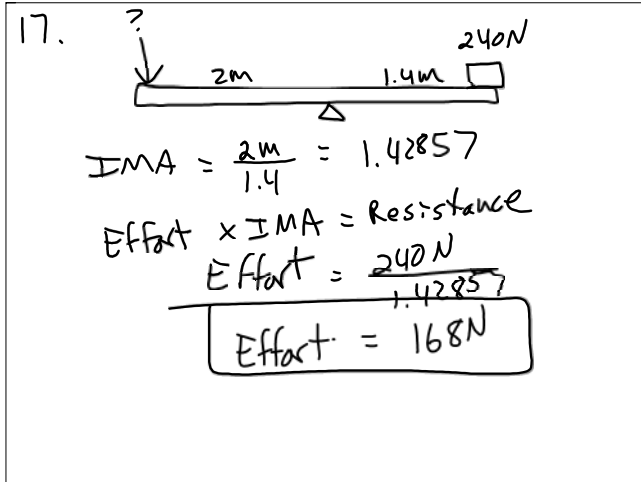 17.
?
240N
2m 1.4m
IMA = 2m/1.4 = 1.42857
Effort × IMA = Resistance
Effort = 240N/1.42857
Effort = 168N